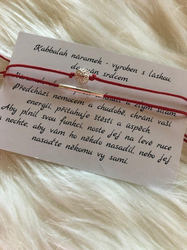 Kabbalah náramek - vyroben s láskou,
srdcem
předchází nemocem a chudobě, chrání vaši
energii, přitahuje štěstí a úspěch.
Aby plnil svou funkci, noste jej na levé ruce
a nechte, aby vám ho někdo nasadil, nebo jej
nasaďte někomu vy sami.